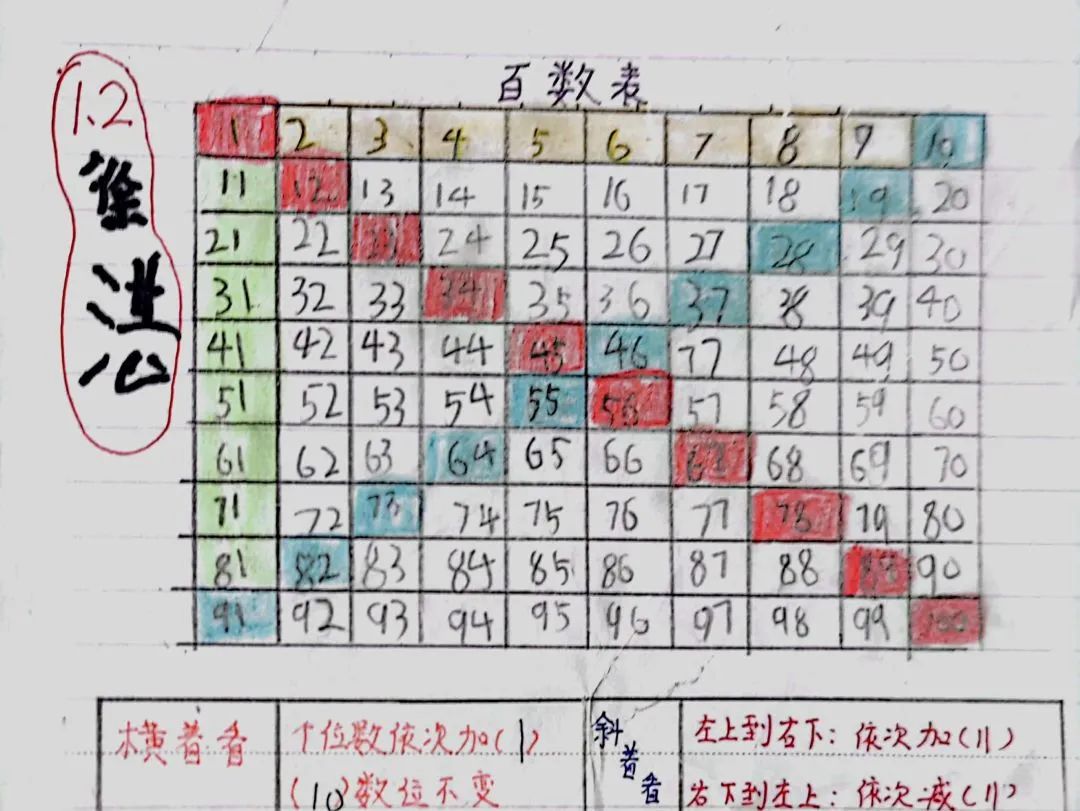 百数表
1.2
徐
1 2 3 4 5 6 7 8 9 10
11 12 13 14 15 16 17 18 19 20
21 22 23 24 25 26 27 28 29 30
31 32 33 34 35 36 37 38 39 40
41 42 43 44 45 46 77 48 49 50
51 52 53 54 55 56 57 58 59 60
61 62 63 64 65 66 67 68 69 70
71 72 73 74 75 76 77 78 79 80
81 82 83 84 85 86 87 88 89 90
91 92 93 94 95 96 97 98 99 100
横着看
个位数依次加(1)
(10)数位不变
斜着看
左上到右下：依次加(11)
右下到左上：依次减(11)